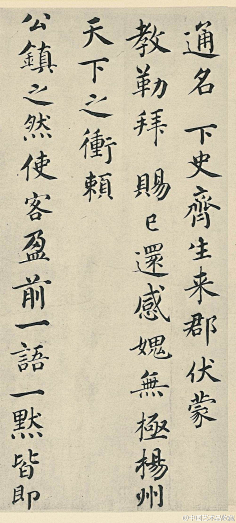 通名 下史齊生来郡伏蒙
教勒拜 賜已還感媿無極楊州
天下之衝頼
公鎮之然使客盈前一語一默皆即